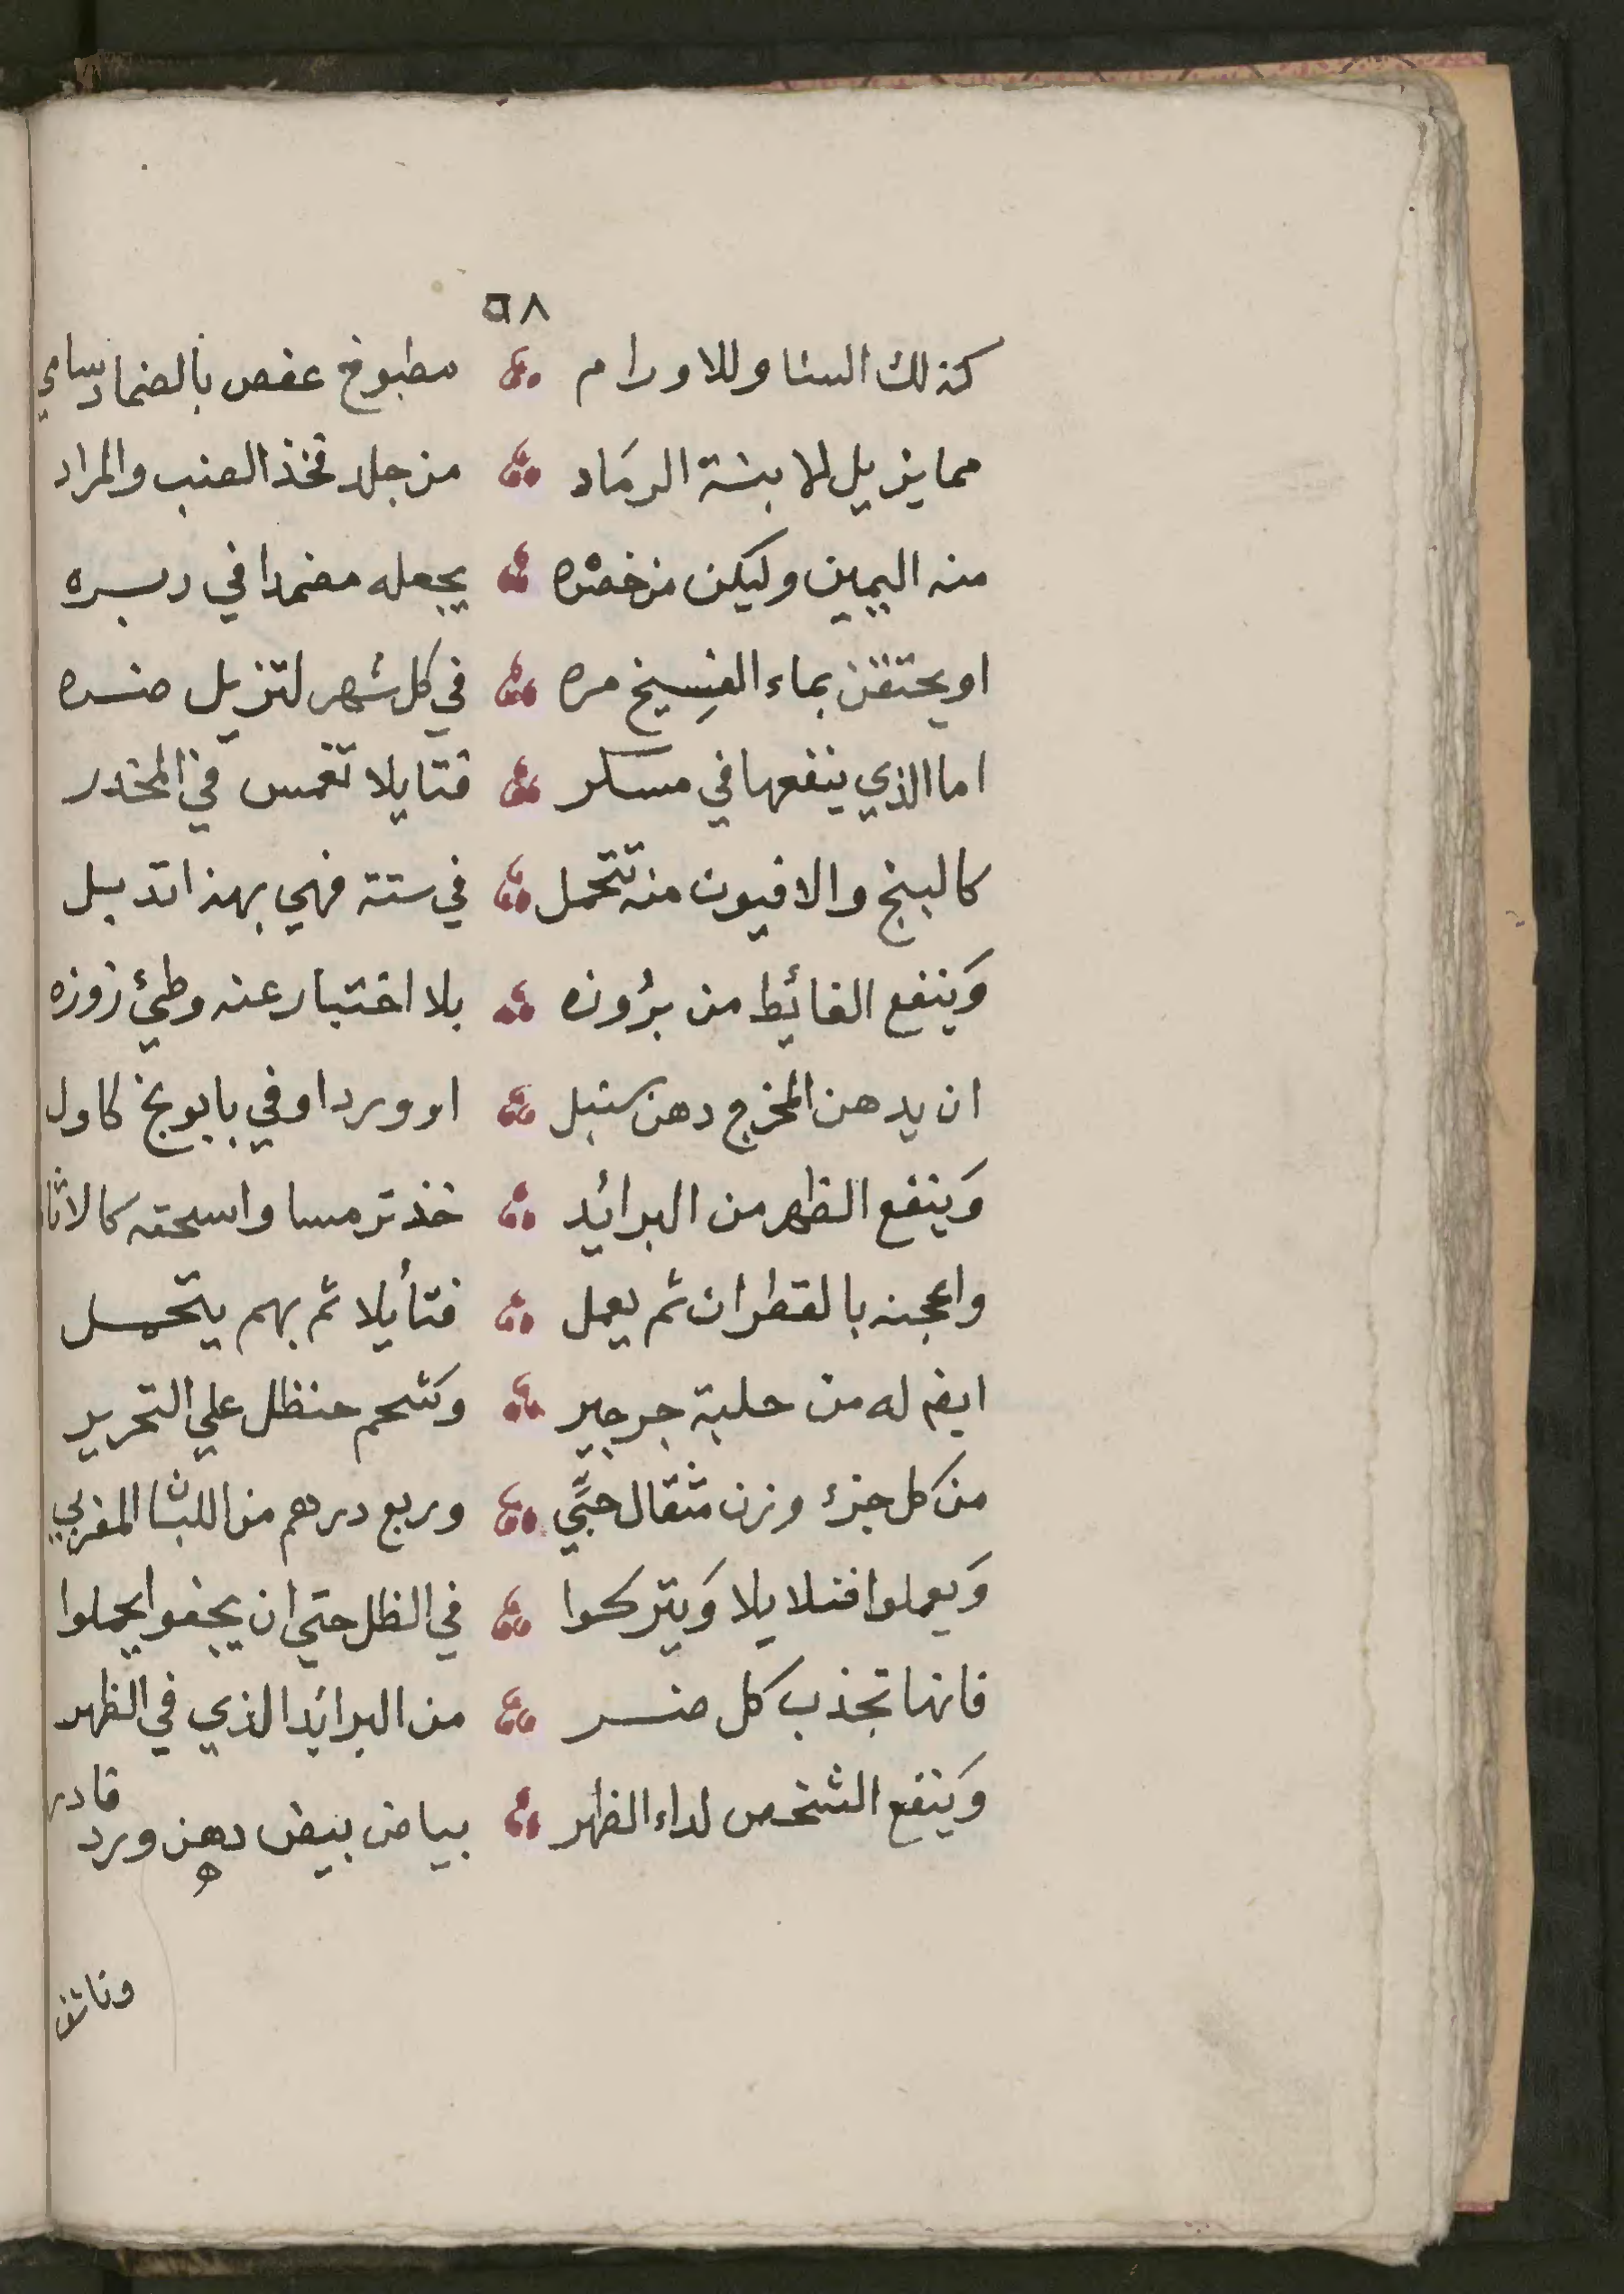 ٥٨
كذلك السنا وللاورام مطبوخ عفص بالضماد سامي
مما يزيل لابنة الرماد من جلد فخذ العنب والمراد
منه اليمين وليكن من خصره يجعله مضمدا في دبره
او يحتقن بماء الفسيخ مره في كل شهر لتزيل ضره
اما الذي ينفعها في مسكر فتايلا تغمس في المخدر
كالبنج والافيون منه تتحمل في ستة فهي بهذا تدبل
وَينفع الغائيط من برُوزه بلا اختبار عنه وطئ زوزه
ان يدهن المخرج دهن سنبل او ورد او في بابونج كاول
وَينفع الظهر من البرائيد خذ ترمسا واسحقه كالاثا
واعجنه بالقطران ثم يعمل فتأيلا ثم بهم يتحمل
ايضا له من حلبة جرجير وشحم حنظل علي التحرير
من كل جزء وزن مثقال حبَّي وربع درهم من اللبان المغربي
وَيعملوا فتلايلا وَيتركوا في الظل حتي ان يجفوا يحملوا
فانها تجذب كل ضر من البرائيد الذي في الظهر
وَينفع الشخص لداء الظهر بياض بيض دهن ورد قادر